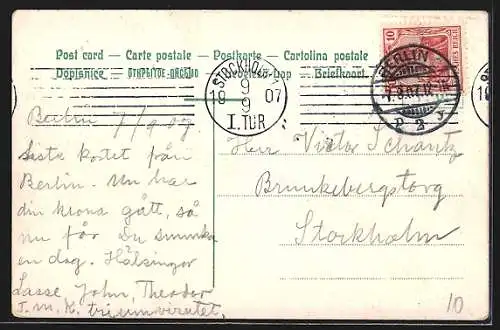 Post card — Carte postale — Postkarte — Cartolina postale —
Dopisnice — ОТКРЫТОЕ ПИСЬМО — Levelező-Lap — Briefkaart —
STOCKHOLM
9
19 9 07
I. TUR
10
BERLIN
7.9.07.12
P 2
Berlin 7/9 07
Siste kortet från
Berlin. Nu har
din krona gått, så
nu får Du smunka
en dag. Hälsingar
Lasse John, Theodor
T.m.K. triumviratet.
Herr Victor Schantz
Brunkebergstorg
Stockholm
10